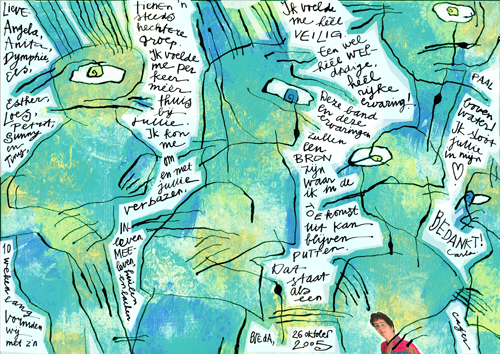 LIEVE
Angela,
Anita,
Dymphie,
Els,
Esther,
Loes,
Petra,
Sunny
en
Tiny.
10
weken
lang
vormden
wy
met z'n
tienen 'n
steeds
hechtere
groep.
Ik voelde
me per
keer
méér
thuis
by
jullie.
Ik kon
me
om
en met
jullie
verbazen.
IN-
leven
MEE-
leven, huilen
en lachen.
Ik voelde
me héél
VEILIG
Een wel
héél WEL-
dadige,
héél
ryke
ervaring!
Deze band
en deze
ervaringen
zullen
een
BRON
zyn
waar
ik in de
TOEKomst
uit kan
blyven
putten.
Dat
staat
als
een
PAAL
boven
water!
Ik sloot
jullie
in myn
BEDANKT!
BREDA,
26 oktober
2005